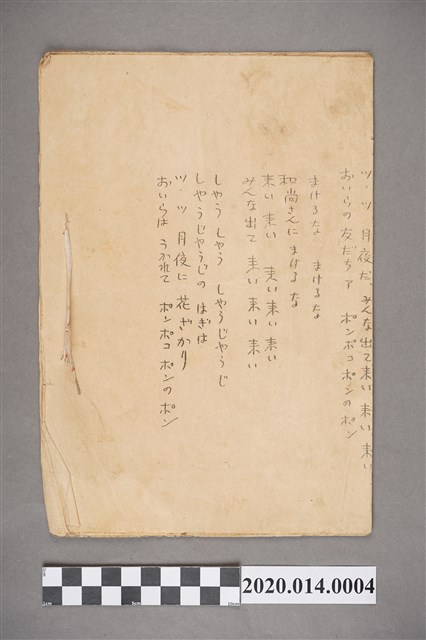 ツ、ツ 月夜だ、みんな出て来い 来い 来い
おいらの友だちァ ポンポコポンのポン
まけるな まけるな
和尚さんに まけるな
来い 来い 来い 来い 来い
みんな出て 来い 来い 来い
しやう しやう しやうじやうじ
しやうじやうじの はぎは
ツ、ツ 月夜に 花ざかり
おいらは うかれて ポンポコ ポンのポン
2020.014.0004